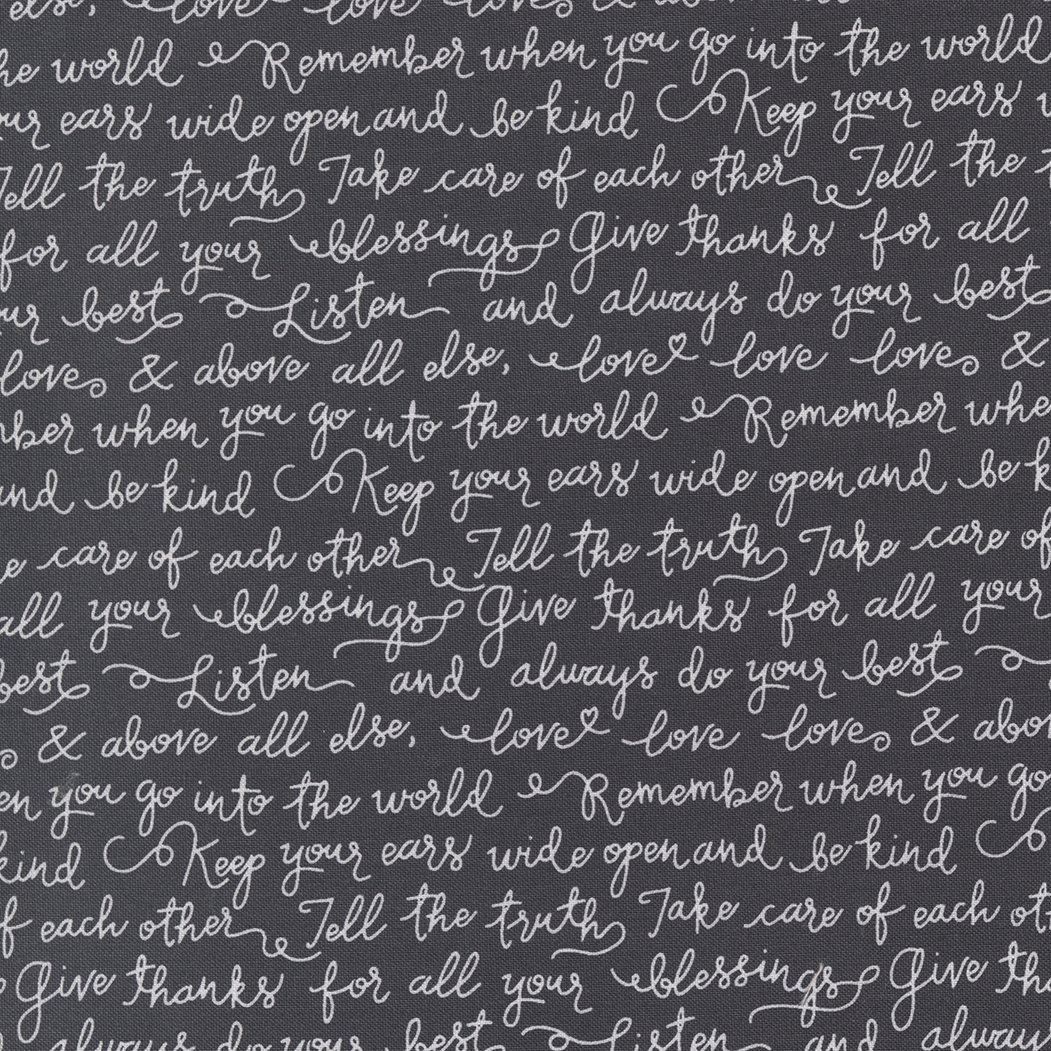 else, love love love & above all
he world Remember when you go into the world
ur ears wide open and be kind Keep your ears
Tell the truth Take care of each other Tell the
for all your blessings Give thanks for all
ur best Listen and always do your best
love & above all else, love love love &
mber when you go into the world Remember whe
and be kind Keep your ears wide open and be k
e care of each other Tell the truth Take care of
all your blessings Give thanks for all your
best Listen and always do your best
& above all else, love love love & abov
en you go into the world Remember when you go
kind Keep your ears wide open and be kind
of each other Tell the truth Take care of each ot
Give thanks for all your blessings Give tha
always do your best Listen and always